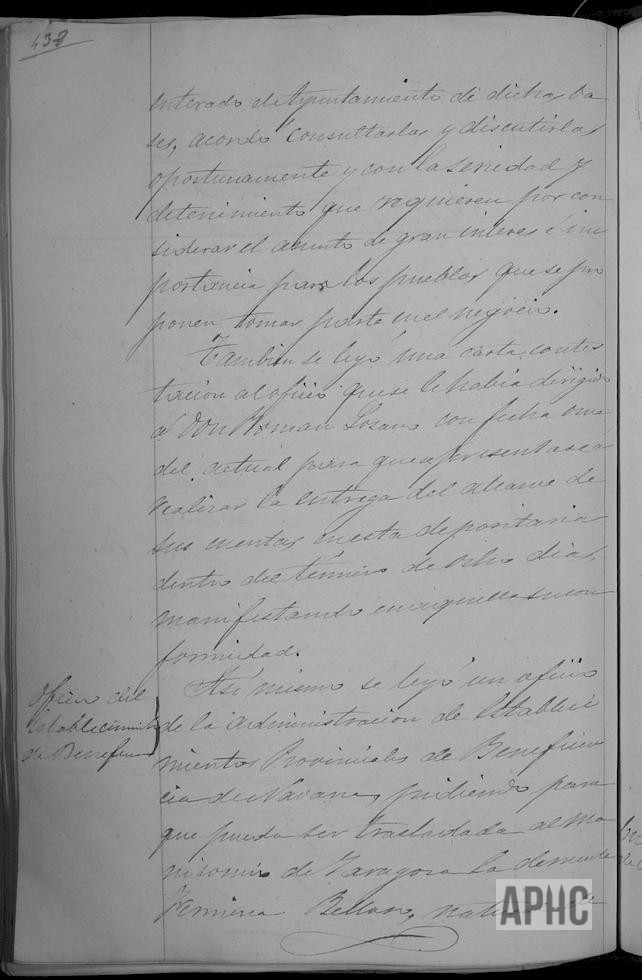 437
enterado el Ayuntamiento de dichas ba
ses, acordó consultarlas y discutirlas
oportunamente y con la seriedad y
detenimiento que requieren por con
siderar el asunto de gran interes é im
portancia para los pueblos que se pro
ponen tomar parte en el negocio.
Tambien se leyó una carta contes
tacion al oficio que se le habia dirigido
á Don Roman Lozano con fecha once
del actual para que se presentase á
realizar la entrega del alcance de
sus cuentas en esta depositaria
dentro del término de ocho dias,
manifestando en aquella su con
formidad.
Oficio del
establecimiento
de Beneficencia
Asi mismo se leyó un oficio
de la administracion de Estableci
mientos Provinciales de Beneficen
cia de Navarra, pidiendo para
que pueda ser trasladada al Ma
nicomio de Zaragoza la demente
Fermina Bellon, natural de
APHC